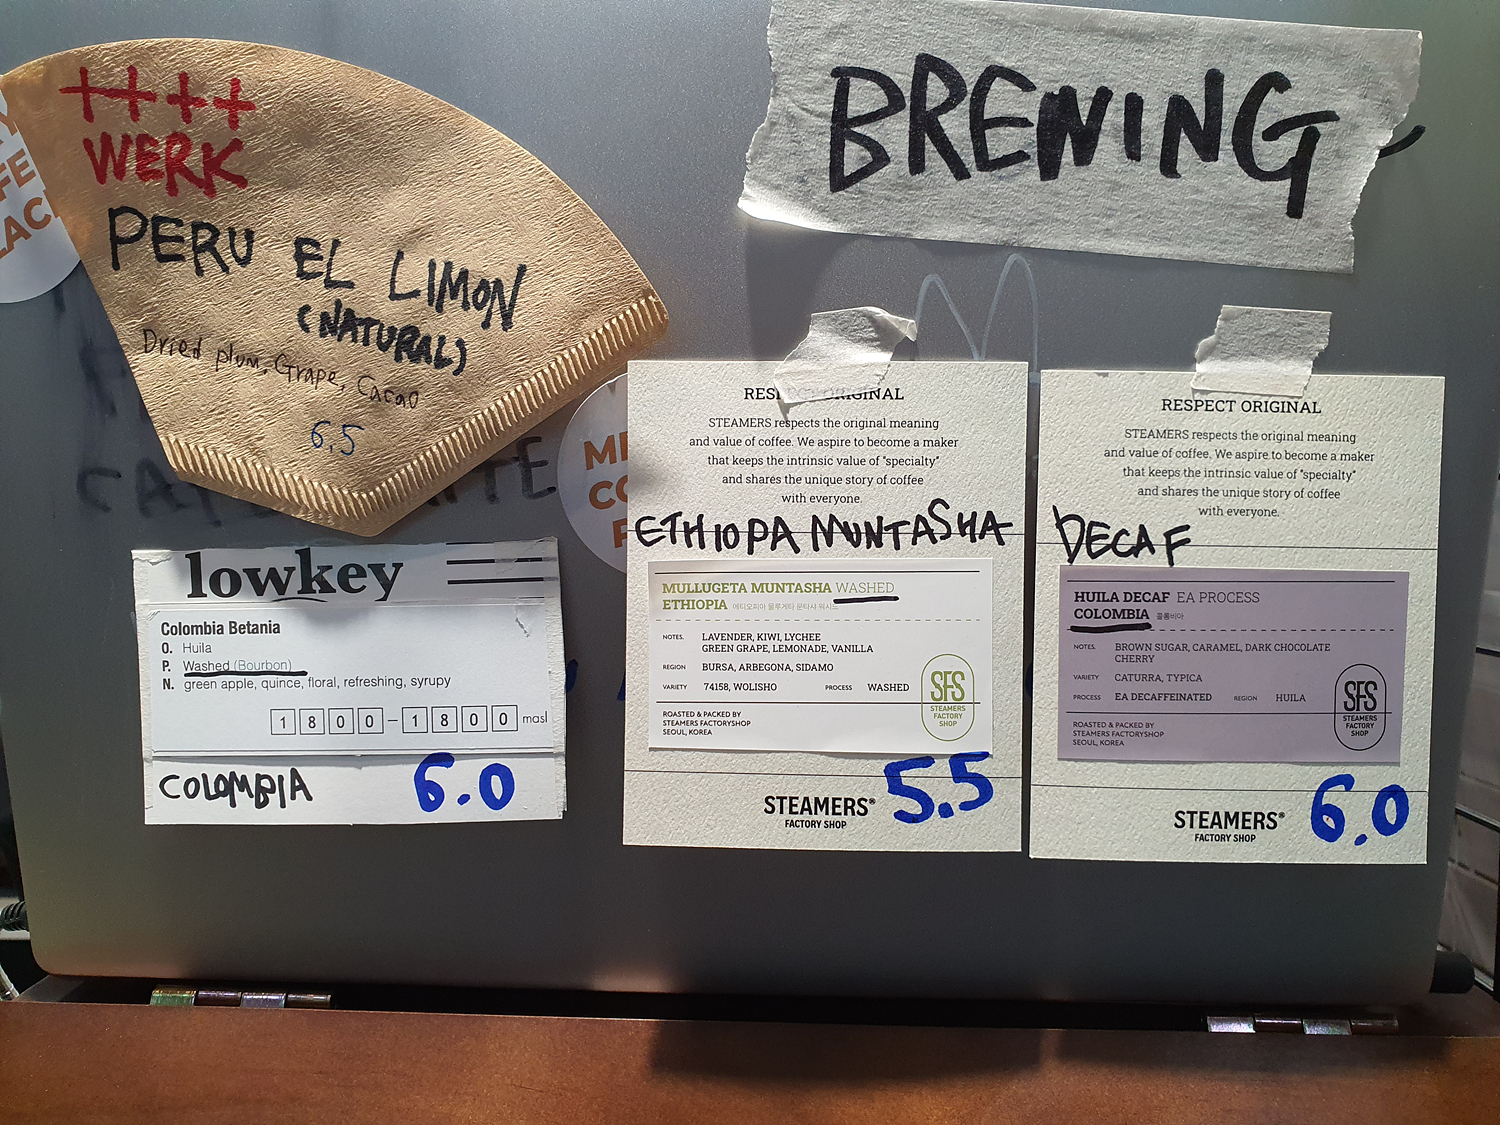 ++++
WERK
PERU EL LIMON
(NATURAL)
Dried plum, Grape, Cacao
6.5
BREWING
lowkey
Colombia Betania
O. Huila
P. Washed (Bourbon)
N. green apple, quince, floral, refreshing, syrupy
1800-1800 masl
COLOMBIA 6.0
RESPECT ORIGINAL
STEAMERS respects the original meaning
and value of coffee. We aspire to become a maker
that keeps the intrinsic value of "specialty"
and shares the unique story of coffee
with everyone.
ETHIOPA MUNTASHA
MULLUGETA MUNTASHA WASHED
ETHIOPIA 에티오피아 물루게타 문타샤 워시드
NOTES. LAVENDER, KIWI, LYCHEE
GREEN GRAPE, LEMONADE, VANILLA
REGION BURSA, ARBEGONA, SIDAMO
VARIETY 74158, WOLISHO PROCESS WASHED
ROASTED & PACKED BY
STEAMERS FACTORYSHOP
SEOUL, KOREA
SFS
STEAMERS
FACTORY
SHOP
5.5
STEAMERS®
FACTORY SHOP
RESPECT ORIGINAL
STEAMERS respects the original meaning
and value of coffee. We aspire to become a maker
that keeps the intrinsic value of "specialty"
and shares the unique story of coffee
with everyone.
DECAF
HUILA DECAF EA PROCESS
COLOMBIA 콜롬비아
NOTES. BROWN SUGAR, CARAMEL, DARK CHOCOLATE
CHERRY
VARIETY CATURRA, TYPICA
PROCESS EA DECAFFEINATED REGION HUILA
ROASTED & PACKED BY
STEAMERS FACTORYSHOP
SEOUL, KOREA
SFS
STEAMERS
FACTORY
SHOP
6.0
STEAMERS®
FACTORY SHOP